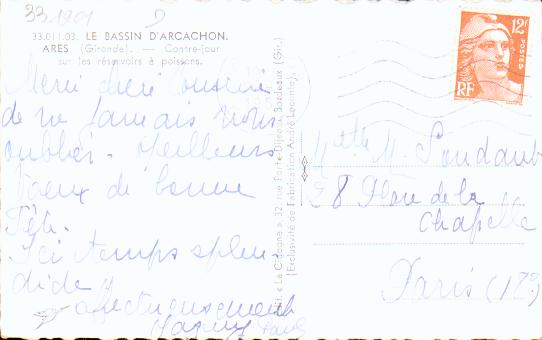 33 1901 D
33.011.03. LE BASSIN D'ARCACHON.
ARES (Gironde). — Contre-jour
sur les réservoirs à poissons.
Merci chère Cousine
de ne jamais nous
oublier. Meilleurs
Voeux de bonne
Fête.
Ici temps splen
dide
affectueusement
Edit. « La Cigogne », 32, rue Porte-Dijeaux, Bordeaux (Gir.)
(Exclusivité de Fabrication André Leconte)
12F
POSTES
RF
Melle M
28 Place de la
Chapelle
Paris (17e)